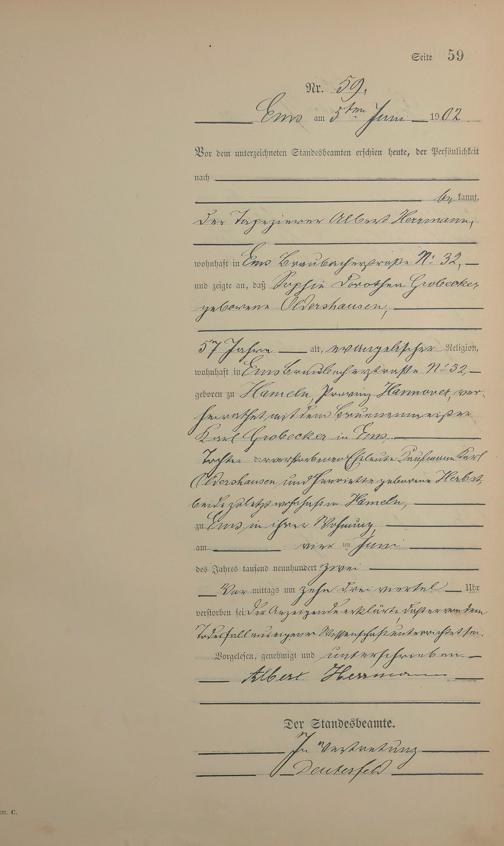 Seite 59
Nr. 59.
Ems am 5ten Juni 1902
Vor dem unterzeichneten Standesbeamten erschien heute, der Persönlichkeit
nach
be kannt,
der Tapezierer Albert Herrmann,
wohnhaft in Ems Braubacherstraße No 32,
und zeigte an, daß Sophie Dorothea Grobecker
geborene Oldershausen,
57 Jahre alt, evangelischer Religion,
wohnhaft in Ems Braubacherstraße No 32
geboren zu Hameln, Provinz Hannover, ver-
heirathet mit dem Brunnenmeister
Karl Grobecker in Ems.
Tochter verstorbener Eheleute Kaufmann Karl
Oldershausen und Henriette geborene Herbst,
beide zuletzt wohnhaft in Hameln,
zu Ems, in ihrer Wohnung,
am vier ten Juni
des Jahres tausend neunhundert zwei
Vor mittags um zehn drei viertel Uhr
verstorben sei. Der Anzeigende erklärte, daß er von dem
Todesfall aus eigener Wissenschaft unterrichtet sei.
Vorgelesen, genehmigt und unterschrieben
Albert Herrmann
Der Standesbeamte.
In Vertretung